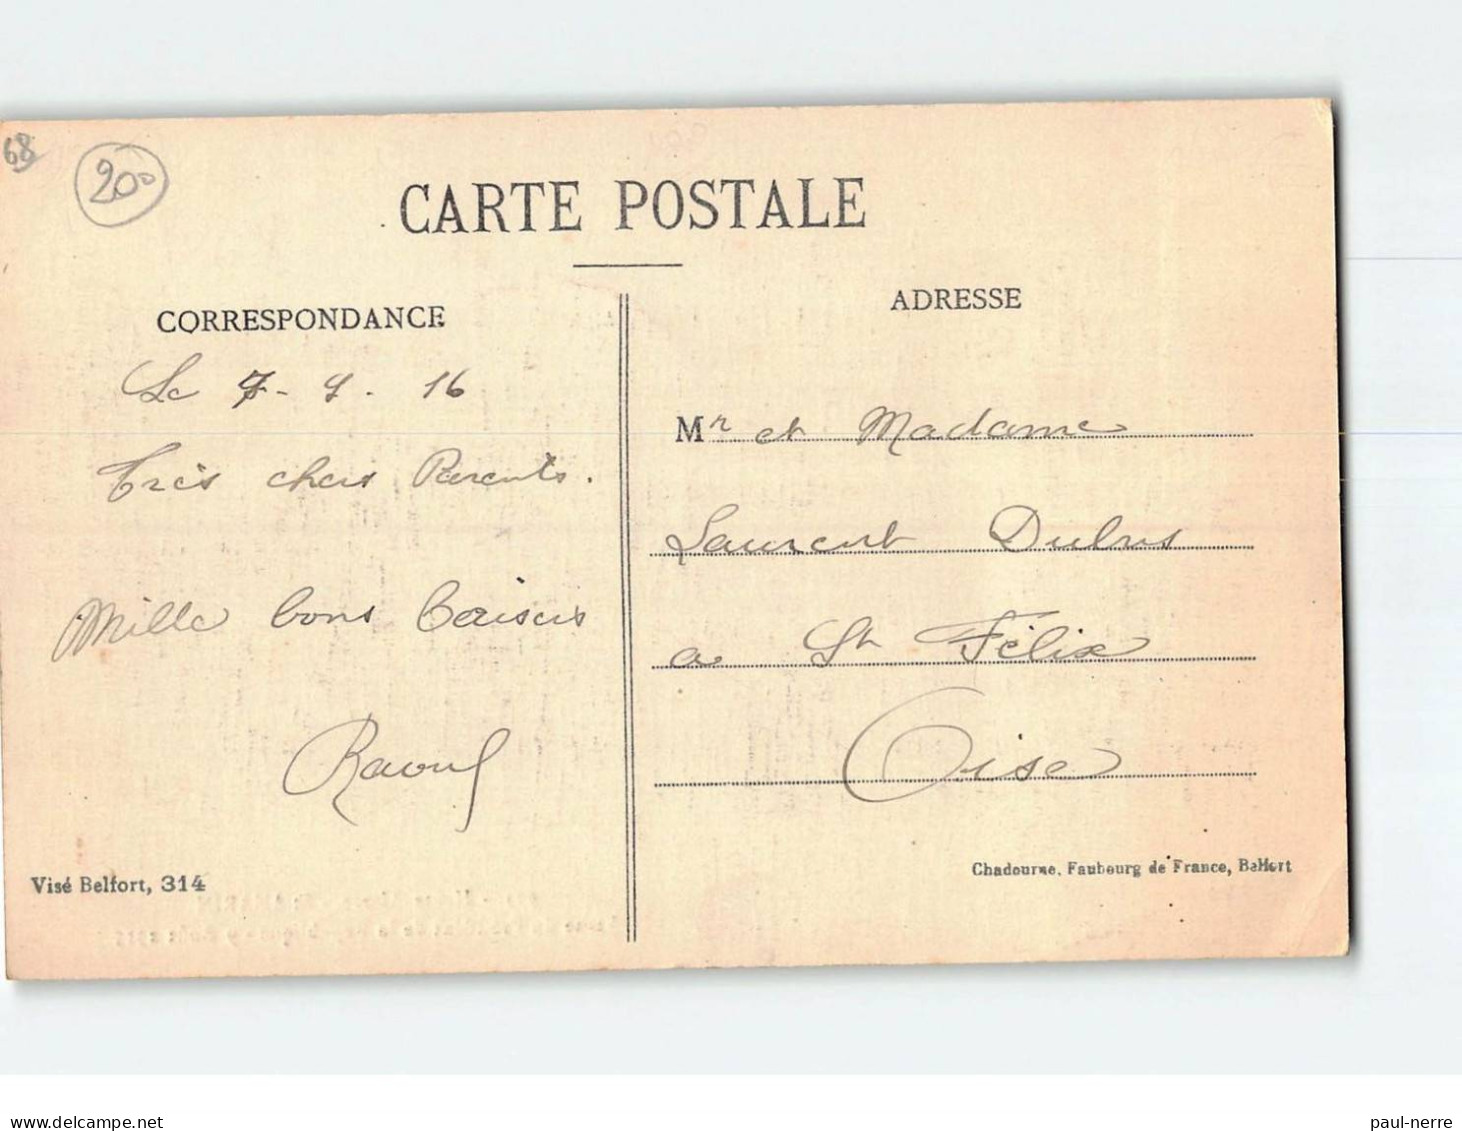 68
200
CARTE POSTALE
CORRESPONDANCE
Le 7-9.16
Très chers Parents.
Mille bons baisers
Raoul
Visé Belfort, 314
ADRESSE
Mr et Madame
Laurent
a St Félix
Oise
Chadourne, Faubourg de France, Belfort
delcampe.net
paul-nerre